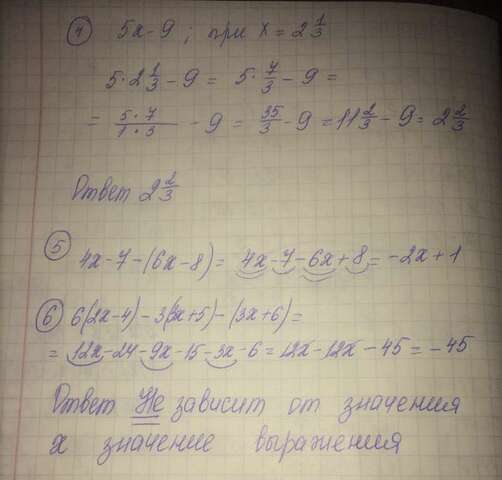 ④ 5x - 9 ; при x = 2 1/3
5 · 2 1/3 - 9 = 5 · 7/3 - 9 =
= 5 · 7 / 1 · 3 - 9 = 35/3 - 9 = 11 2/3 - 9 = 2 2/3
Ответ 2 2/3
⑤ 4x - 7 - (6x - 8) = 4x - 7 - 6x + 8 = -2x + 1
⑥ 6(2x - 4) - 3(3x + 5) - (3x + 6) =
= 12x - 24 - 9x - 15 - 3x - 6 = 12x - 12x - 45 = -45
Ответ Не зависит от значения
x значение выражения